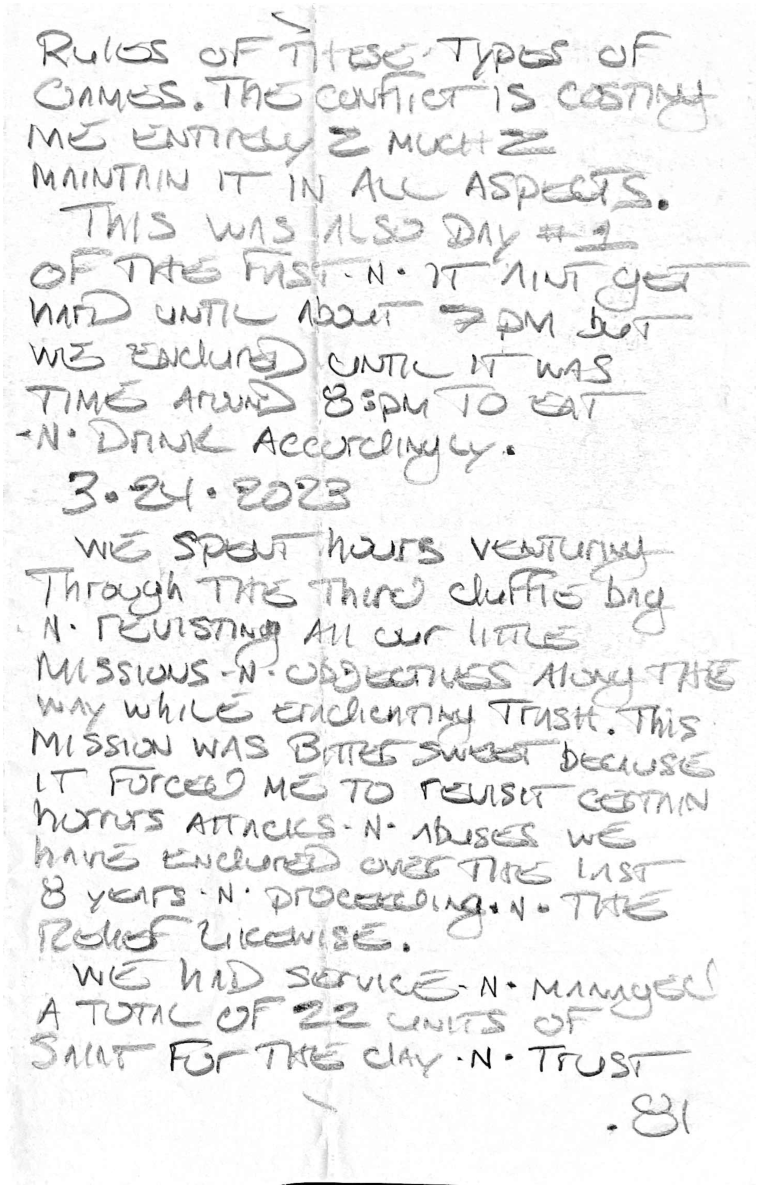 RULES OF THESE TYPES OF
GAMES. THE CONFLICT IS COSTING
ME ENTIRELY 2 MUCH 2
MAINTAIN IT IN ALL ASPECTS.
THIS WAS ALSO DAY #1
OF THE FAST -N- IT AINT GET
HARD UNTIL About 7 PM but
WE ENDURED UNTIL IT WAS
TIME AROUND 8:PM TO EAT
-N- DRINK ACCORDINGLY.
3.24.2023
WE SPENT hours VENTURING
Through THE Third duffle bag
N. REVISTING All our little
MISSIONS -N- OBJECTIVES Along THE
WAY WHILE ERADICATING TRASH. This
MISSION WAS BITTER SWEET BECAUSE
IT FORCED ME TO REVISIT CERTAIN
HORRORS ATTACKS -N- Abuses WE
HAVE ENDURED OVER THE LAST
8 years -N- proceeding -N- THE
RELIEF LIKEWISE.
WE HAD SERVICE -N- MANAGED
A TOTAL OF 22 UNITS OF
FOR THE day -N- TRUST
.81